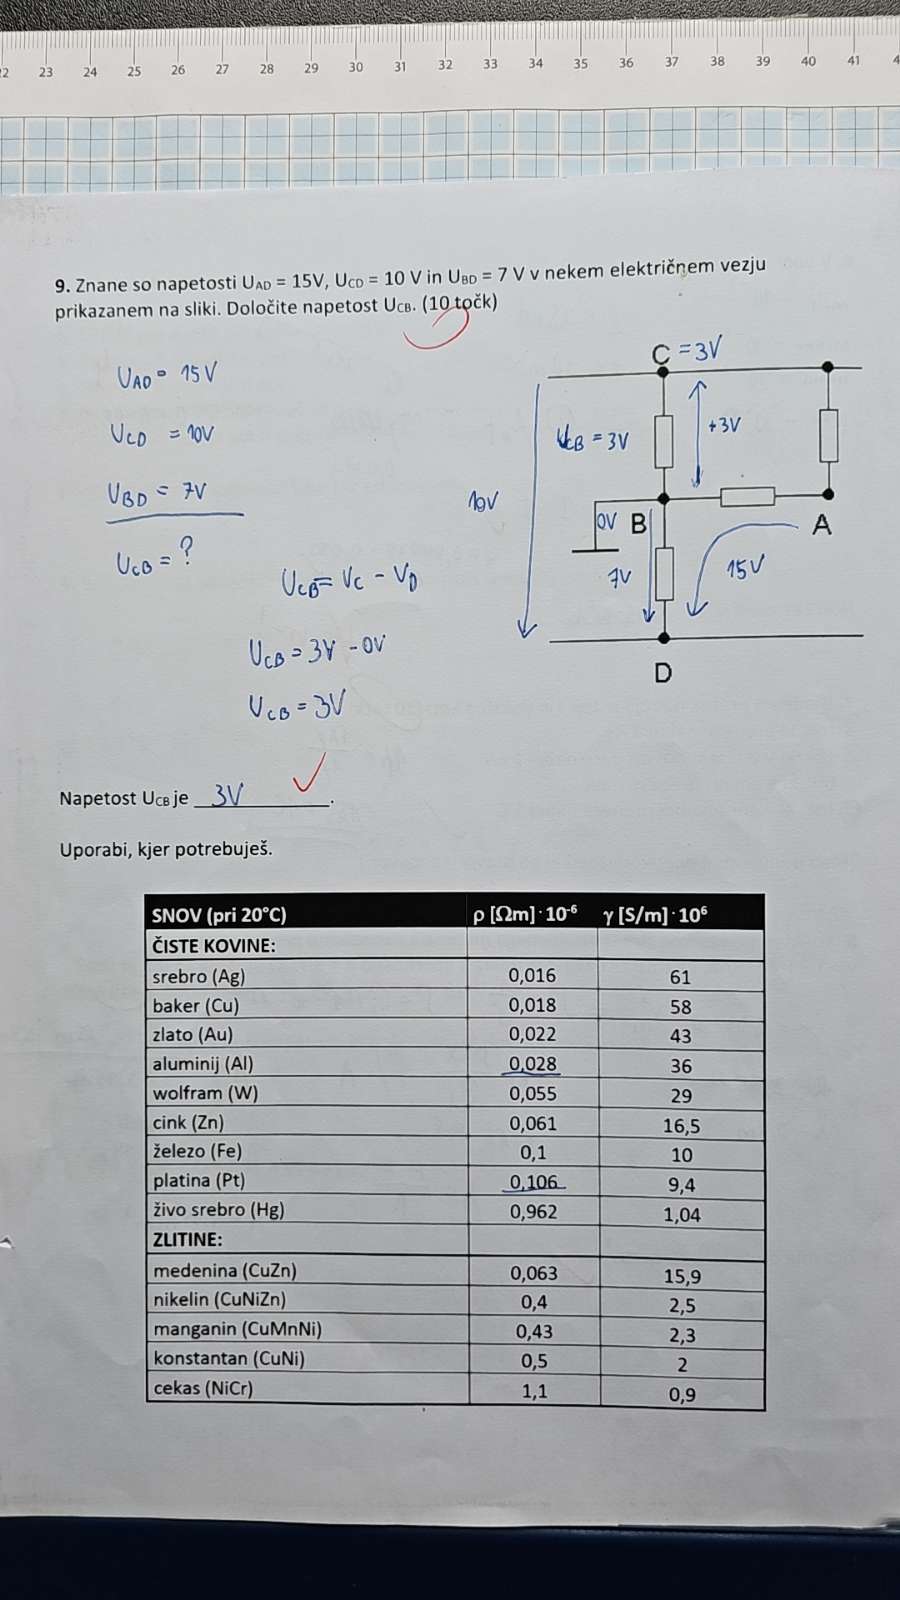 22 23 24 25 26 27 28 29 30 31 32 33 34 35 36 37 38 39 40 41
9. Znane so napetosti UAD = 15V, UCD = 10 V in UBD = 7 V v nekem električnem vezju
prikazanem na sliki. Določite napetost UCB. (10 točk)
UAD = 15V
UCD = 10V
UBD = 7V
UCB = ?
UCB = VC - VD
UCB = 3V - 0V
UCB = 3V
C = 3V
UCB = 3V
+3V
10V
0V B
A
7V
15V
D
Napetost UCB je 3V.
Uporabi, kjer potrebuješ.
SNOV (pri 20°C) ρ [Ωm] · 10-6 γ [S/m] · 106
ČISTE KOVINE:
srebro (Ag) 0,016 61
baker (Cu) 0,018 58
zlato (Au) 0,022 43
aluminij (Al) 0,028 36
wolfram (W) 0,055 29
cink (Zn) 0,061 16,5
železo (Fe) 0,1 10
platina (Pt) 0,106 9,4
živo srebro (Hg) 0,962 1,04
ZLITINE:
medenina (CuZn) 0,063 15,9
nikelin (CuNiZn) 0,4 2,5
manganin (CuMnNi) 0,43 2,3
konstantan (CuNi) 0,5 2
cekas (NiCr) 1,1 0,9